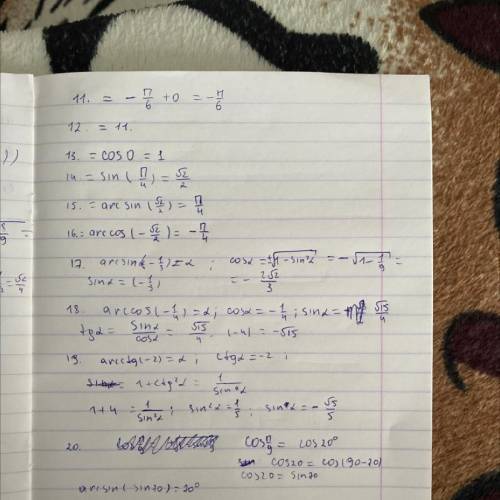 11. = - π/6 + 0 = - π/6
12. = 11.
13. = cos 0 = 1
14. = sin ( π/4 ) = √2/2
15. = arcsin ( √2/2 ) = π/4
16. = arccos ( - √2/2 ) = - π/4
17. arcsin(- 1/3) = α ; cosα = √1 - sin²α = - √1 - 1/9 =
sinα = (- 1/3) = - 2√2/3
18. arccos(- 1/4) = α; cosα = - 1/4 ; sinα = √15/4
tgα = sinα/cosα = √15/4 · (-4) = - √15
19. arcctg(-2) = α ; ctgα = -2 ;
1 + ctg²α = 1/sin²α
1 + 4 = 1/sin²α ; sin²α = 1/5 ; sinα = - √5/5
20. cos π/9 = cos 20°
cos20 = cos(90 - 20)
cos20 = sin70
arcsin(sin70) = 70°
))
8/9
√2/4